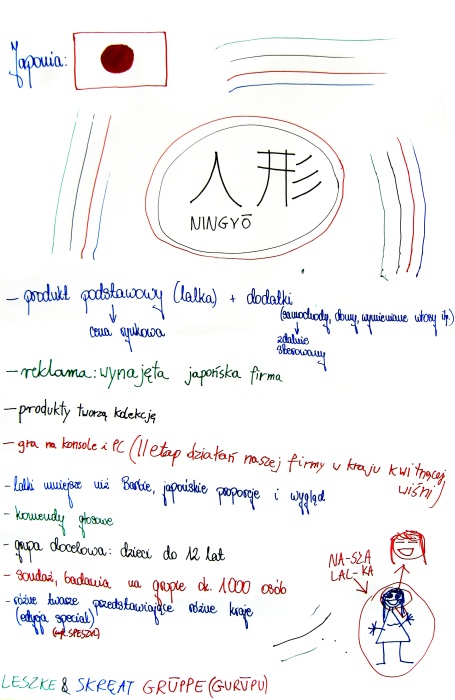 Japonia:
人形
NINGYŌ
- produkt podstawowy (lalka) + dodatki
(samochody, domy, wymieniane włosy itp.)
cena rynkowa
zdalnie
sterowany
- reklama: wynajęta japońska firma
- produkty tworzą kolekcję
- gra na konsole i PC (II etap działań naszej firmy w kraju kwitnącej
wiśni)
- lalki mniejsze niż Barbie, japońskie proporcje i wygląd
- komendy głosowe
- grupa docelowa: dzieci do 12 lat
- sondaż, badania na grupie ok. 1000 osób
- różne twarze przedstawiające różne kraje
(edycja special)
SPESZYL)
NA-SZA
LAL-KA
LESZKE & SKREAT GRŪPPE (GURŪPU)